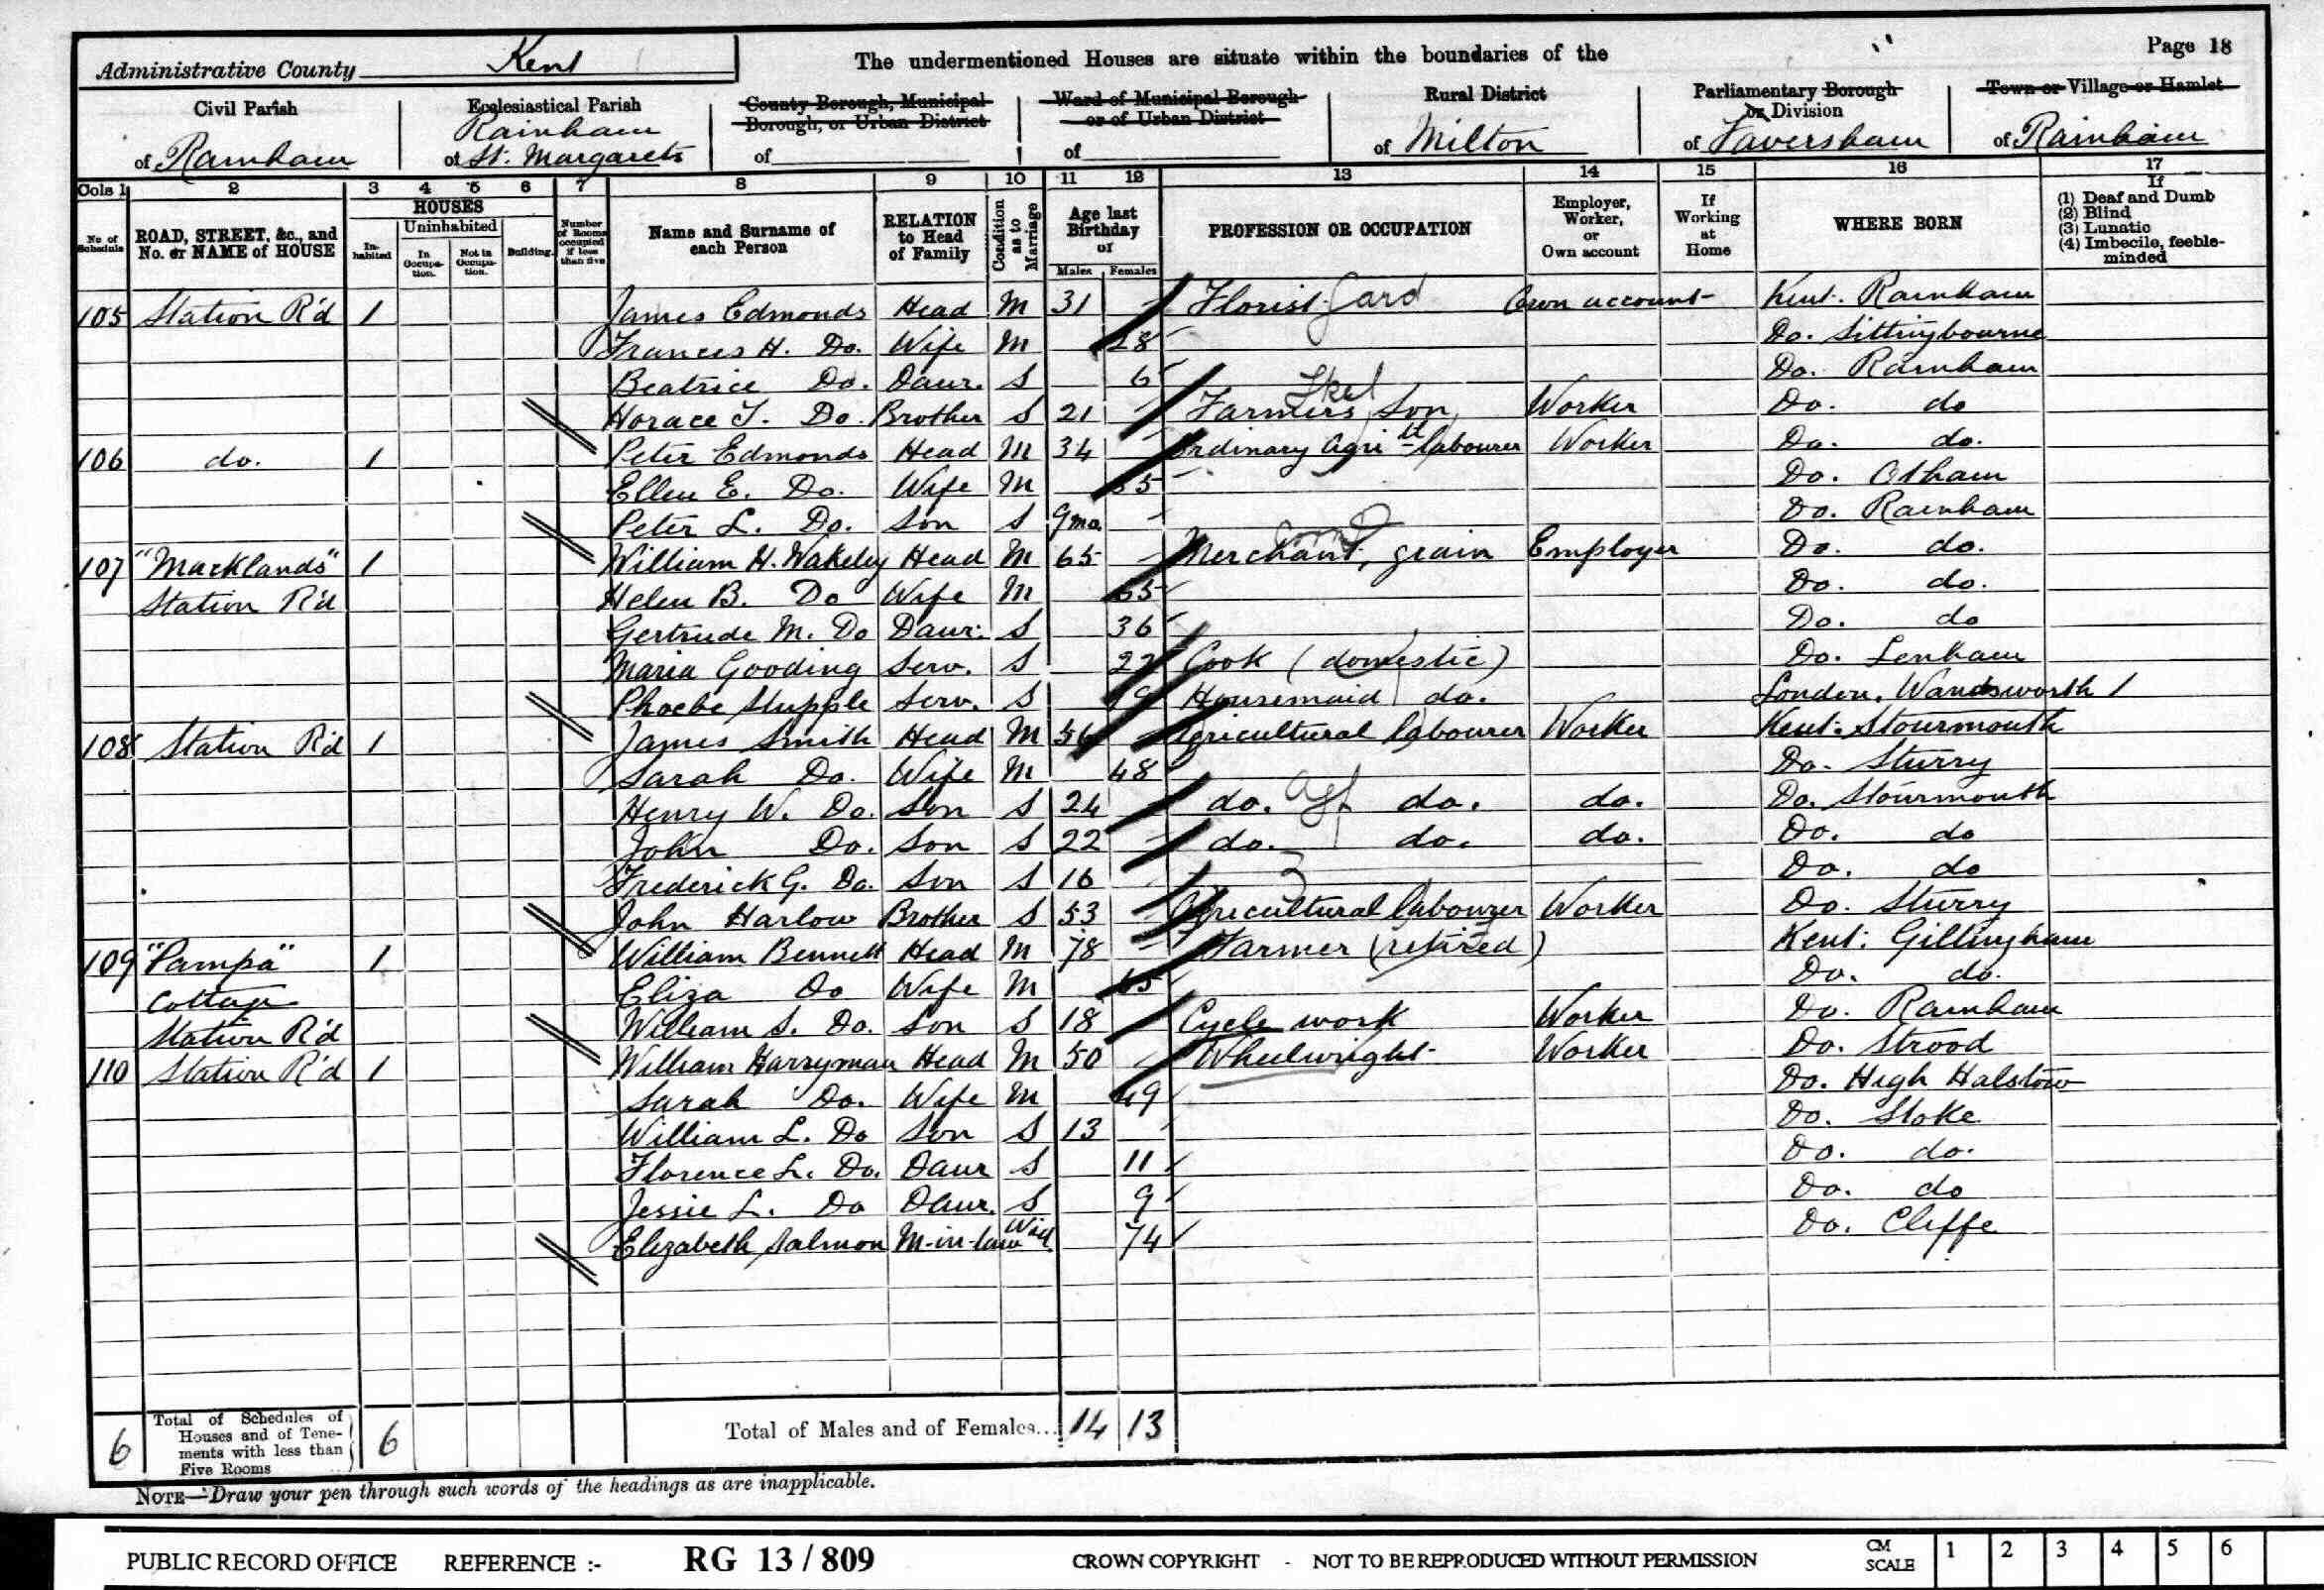 Page 18
Administrative County Kent
The undermentioned Houses are situate within the boundaries of the
Civil Parish
of Rainham
Ecclesiastical Parish
Rainham
of St. Margarets
County Borough, Municipal
Borough, or Urban District
of
Ward of Municipal Borough
or of Urban District
of
Rural District
of Milton
Parliamentary Borough
or Division
of Faversham
Town or Village or Hamlet
of Rainham
Cols 1 2 3 4 5 6 7 8 9 10 11 12 13 14 15 16 17
No of Schedule
ROAD, STREET, &c., and No. or NAME of HOUSE
HOUSES
In-habited
Uninhabited
In Occupa-tion.
Not in Occupa-tion.
Building.
Number of Rooms occupied if less than five
Name and Surname of each Person
RELATION to Head of Family
Condition as to Marriage
Age last Birthday of
Males Females
PROFESSION OR OCCUPATION
Employer, Worker, or Own account
If Working at Home
WHERE BORN
If
(1) Deaf and Dumb
(2) Blind
(3) Lunatic
(4) Imbecile, feeble-minded
105 Station R'd 1 James Edmonds Head M 31 Florist Gard Own account Kent. Rainham
Frances H. Do. Wife M 28 Do. Sittingbourne
Beatrice Do. Daur. S 6 Do. Rainham
Horace T. Do. Brother S 21 Farmers Son Worker Do. do
106 do. 1 Peter Edmonds Head M 34 Ordinary Agri labourer Worker Do. do.
Ellen E. Do. Wife M 35 Do. Otham
Peter L. Do. Son S 9 mo. Do. Rainham
107 "Macklands" 1 William H. Wakeley Head M 65 Merchant, grain Corn Employer Do. do.
Station R'd Helen B. Do Wife M 65 Do. do.
Gertrude M. Do Daur. S 36 Do. do
Maria Gooding Serv. S 22 Cook (domestic) Do. Lenham
Phoebe Stupple Serv. S 19 Housemaid do. London, Wandsworth 1
108 Station R'd 1 James Smith Head M 56 Agricultural labourer Worker Kent. Stourmouth
Sarah Do. Wife M 48 Do. Sturry
Henry W. Do. Son S 24 do. Agl do. do. Do. Stourmouth
John Do. Son S 22 do. do. do. Do. do
Frederick G. Do. Son S 16 Do. do
John Harlow Brother S 53 Agricultural labourer Worker Do. Sturry
109 "Pampa" 1 William Bennett Head M 78 Farmer (retired) Kent: Gillingham
Cottage Eliza Do Wife M 65 Do. do.
Station R'd William S. Do. Son S 18 Cycle work Worker Do. Rainham
110 Station R'd 1 William Harryman Head M 50 Wheelwright Worker Do. Strood
Sarah Do. Wife M 49 Do. High Halstow
William L. Do Son S 13 Do. Stoke
Florence L. Do. Daur S 11 Do. do.
Jessie L. Do Daur. S 9 Do. do
Elizabeth Salmon M-in-law Wid. 74 Do. Cliffe
6 Total of Schedules of Houses and of Tene-ments with less than Five Rooms 6 Total of Males and of Females... 14 13
NOTE—Draw your pen through such words of the headings as are inapplicable.
PUBLIC RECORD OFFICE REFERENCE :- RG 13 / 809 CROWN COPYRIGHT - NOT TO BE REPRODUCED WITHOUT PERMISSION CM SCALE 1 2 3 4 5 6